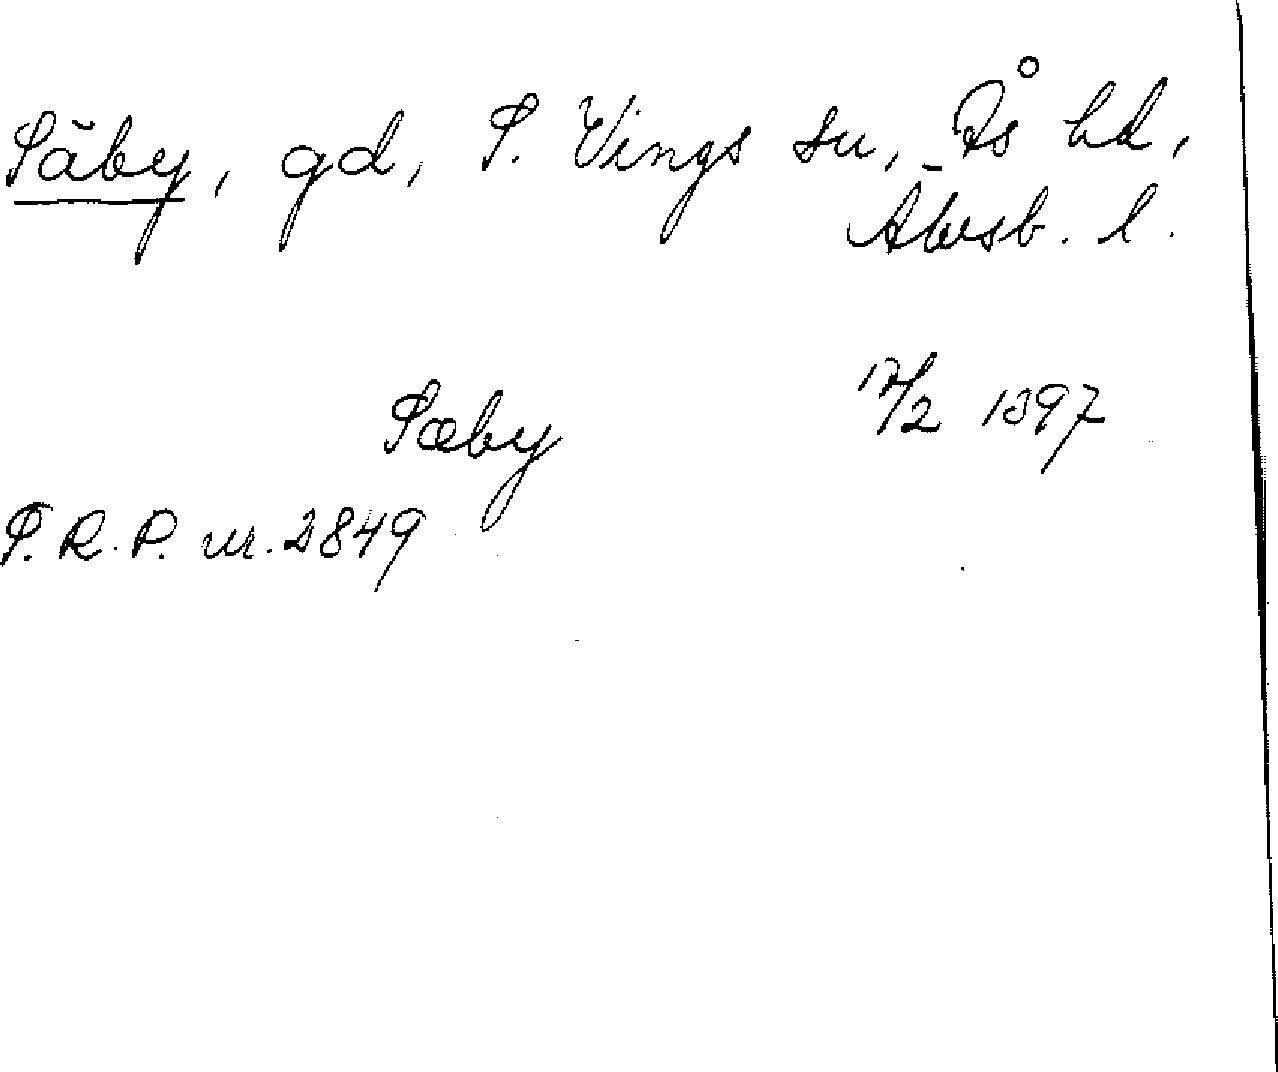 Säby, gd, S. Vings sn, Ås hd,
Älvsb. l.
Sæby 17/2 1397
S.R.P. nr. 2849